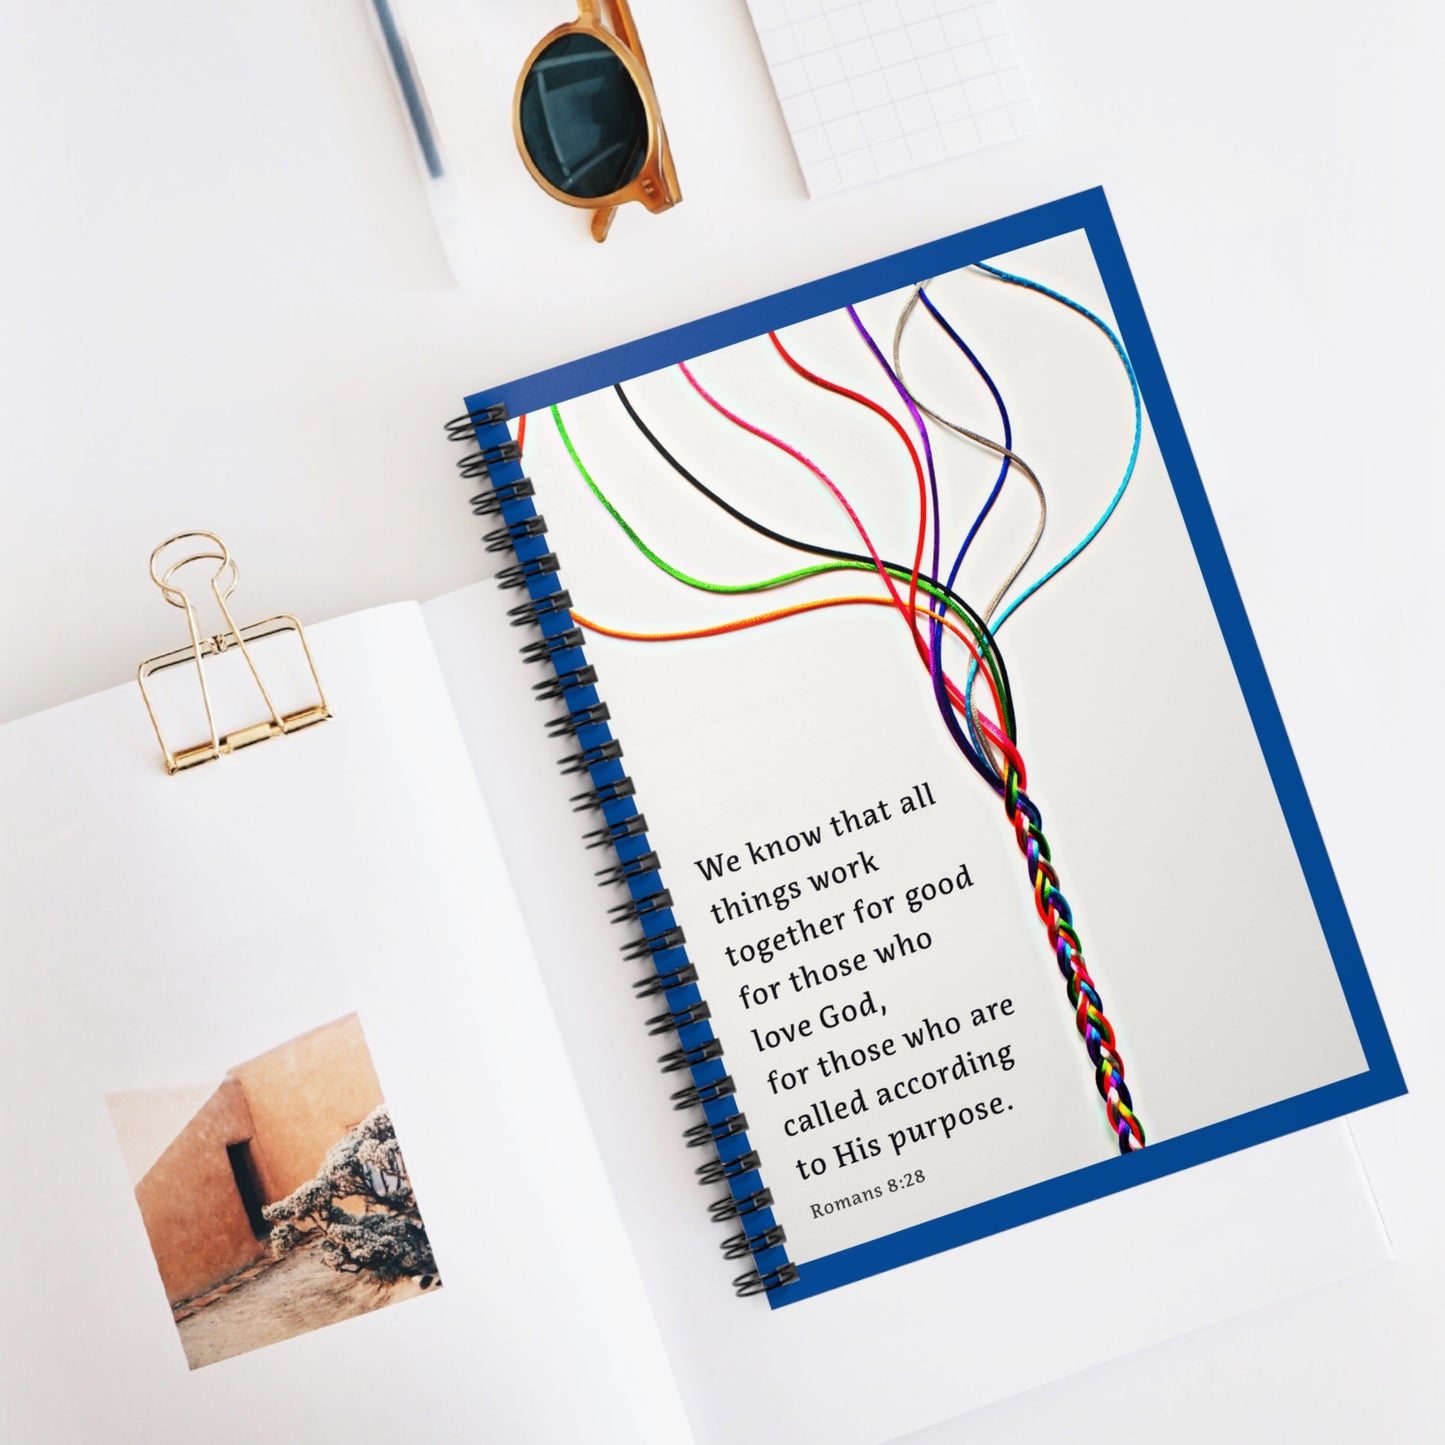 We know that all
things work
together for good
for those who
love God,
for those who are
called according
to His purpose.
Romans 8:28